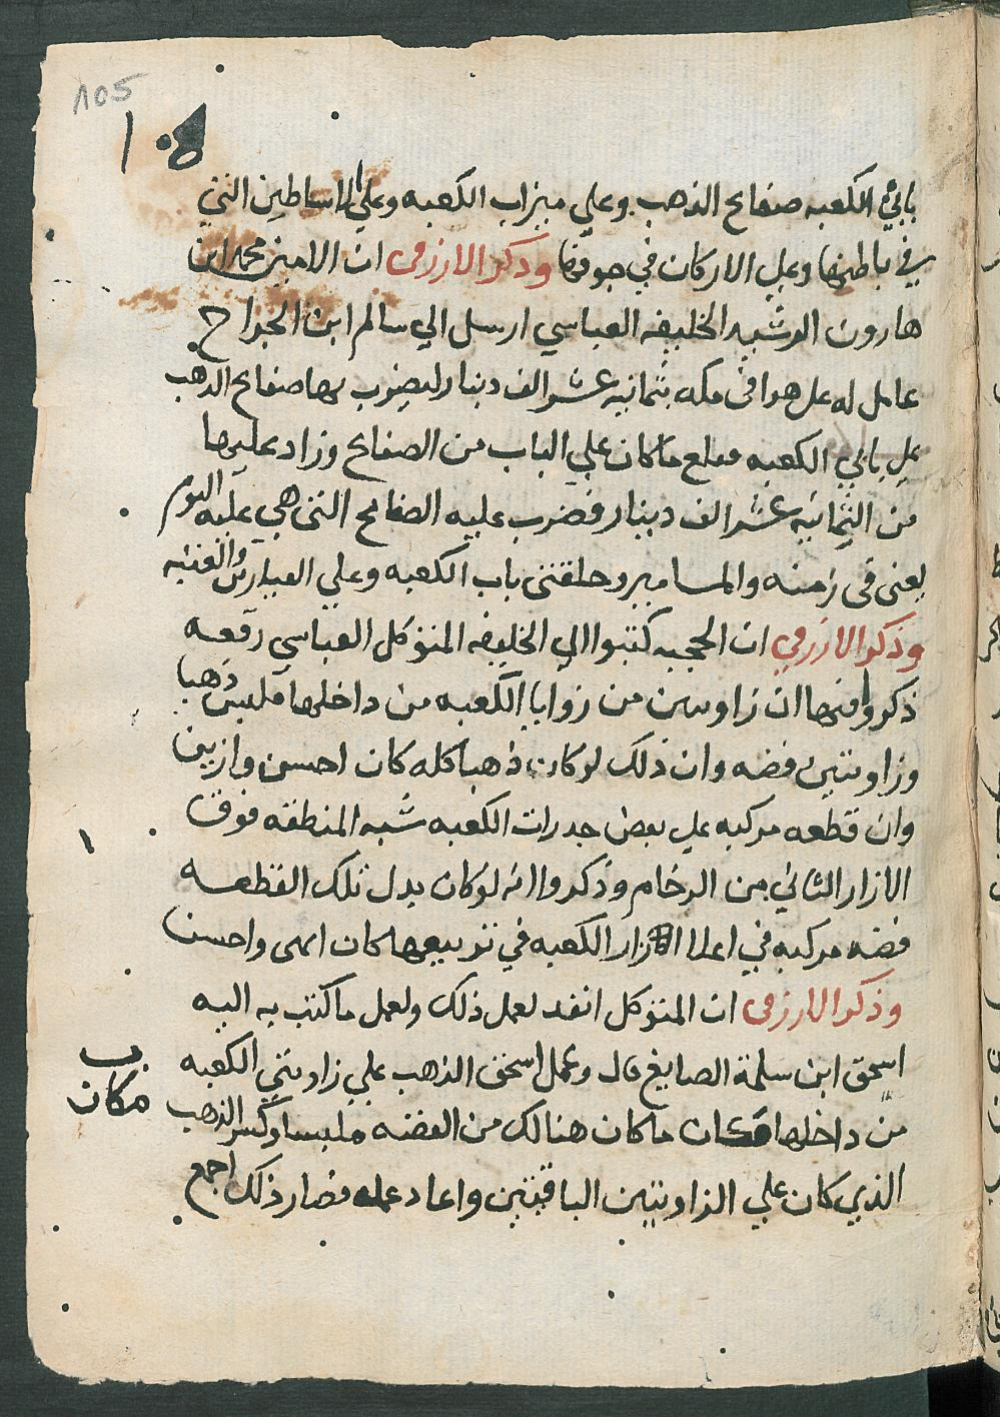 ١٠٥
١٠٥
بابي الكعبه صفايح الذهب وعلي ميزاب الكعبه وعلي الاساطين التي
في باطنها وعلي الاركان في جوفها وذكر الازرقي ان الامين محمد ابن
هارون الرشيد الخليفه العباسي ارسل الي سالم ابن الجراح
عامل له علي هوافي مكه بثمانيه عشر الف دينار ليضرب بها صفايح الذهب
علي بابي الكعبه فقلع ما كان علي الباب من الصفايح وزاد عليها
من الثمانيه عشر الف دينار فضرب عليه الصفايح التي هي عليه اليوم
يعني في زمنه والمسامير وحلقتي باب الكعبه وعلي الفياريز والعتبه
وذكر الازرقي ان الحجبه كتبوا الي الخليفه المتوكل العباسي رقعه
ذكروا فيها ان زاويتين من زوايا الكعبه من داخلها ملبس ذهبا
وزاويتين فضه وان ذلك لو كان ذهبا كله كان احسن وازين
وان قطعه مركبه علي بعض جدرات الكعبه شبه المنطقه فوق
الازار الثاني من الرخام وذكروا انه لو كان بدل تلك القطعه
فضه مركبه في اعلا ازار الكعبه في تربيعها كان ابهى واحسن
وذكر الازرقي ان المتوكل انفد لعمل ذلك ولعمل ما كتب به اليه
اسحق ابن سلمة الصايغ قال وعمل اسحق الذهب علي زاويتي الكعبه
من داخلها فكان ما كان هنالك من الفضه ملبسا وكسر الذهب
مكان
الذي كان علي الزاويتين الباقيتين واعاد عمله فصار ذلك اجمع